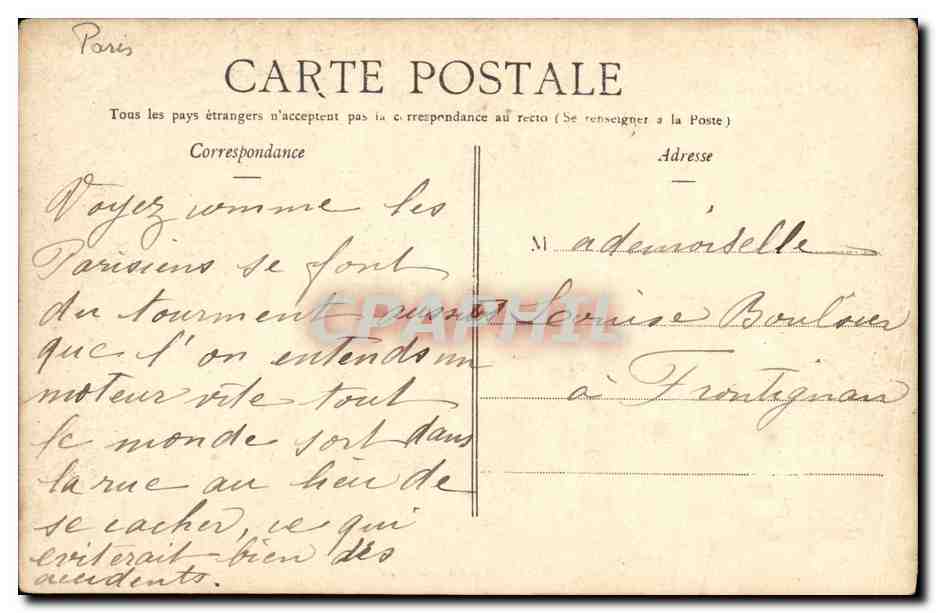 Paris
CARTE POSTALE
Tous les pays étrangers n'acceptent pas la correspondance au recto (Se renseigner a la Poste)
Correspondance
Voyez comme les
Parisiens se font
du tourment aussitôt
que l'on entends un
moteur vite tout
le monde sort dans
la rue au lieu de
se cacher, ce qui
eviterait bien des
accidents.
Adresse
Mademoiselle
Louise
à Frontignan
CPAPHIL